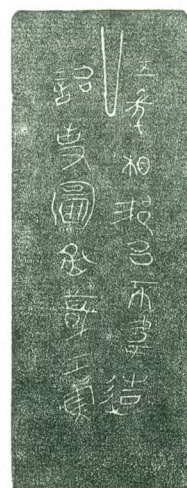 五年相邦呂不韋造
詔事圖丞蕺工寅